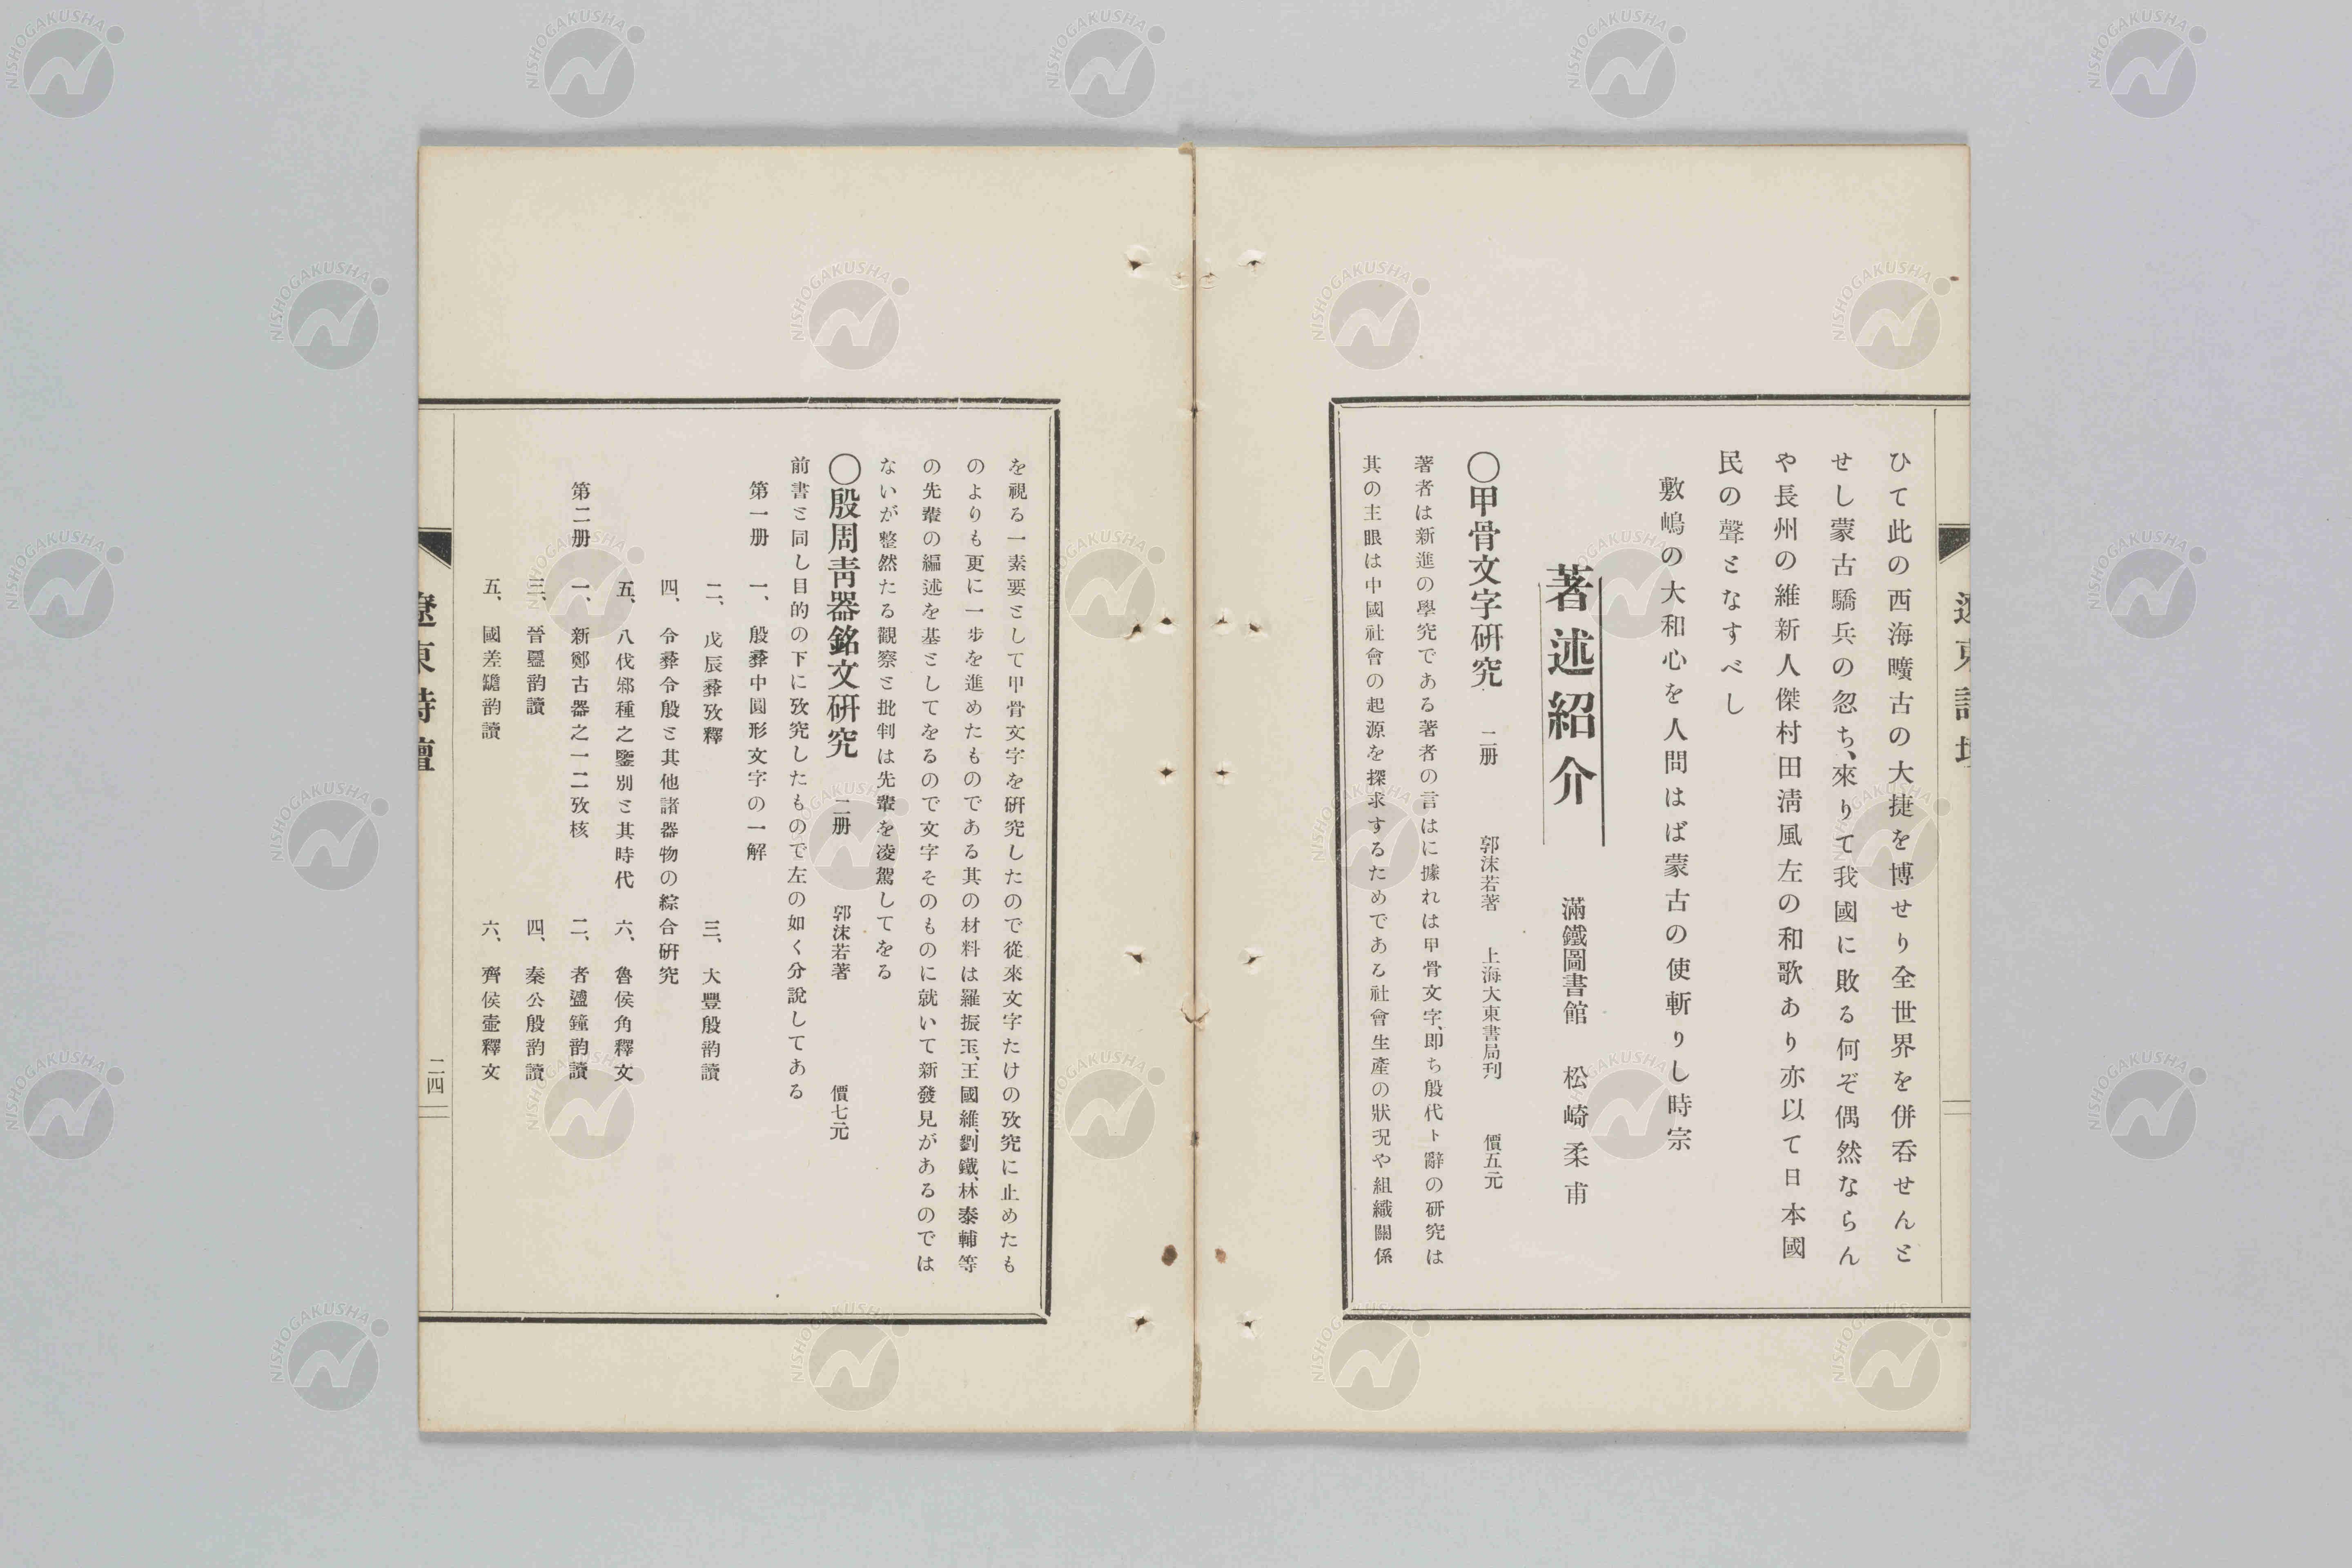 ひて此の西海曠古の大捷を博せり全世界を併呑せんと
せし蒙古驕兵の忽ち、來りて我國に敗る何ぞ偶然ならん
や長州の維新人傑村田淸風左の和歌あり亦以て日本國
民の聲となすべし
敷嶋の大和心を人問はば蒙古の使斬りし時宗
著述紹介　滿鐵圖書館　松崎柔甫
〇甲骨文字硏究　二册　郭沫若著　上海大東書局刋　價五元
著者は新進の學究である著者の言はに據れは甲骨文字、即ち殷代卜辭の硏究は
其の主眼は中國社會の起源を探求するためである社會生產の狀況や組織關係
を視る一素要として甲骨文字を硏究したので從來文字たけの攷究に止めたも
のよりも更に一步を進めたものである其の材料は羅振玉、王國維、劉鐵、林泰輔等
の先輩の編述を基としてをるので文字そのものに就いて新發見があるのでは
ないが整然たる觀察と批判は先輩を凌駕してをる
〇殷周靑器銘文硏究　二册　郭沫若著　價七元
前書と同し目的の下に攷究したもので左の如く分說してある
第一册　一、殷彝中圓形文字の一解
二、戊辰彝攷釋　三、大豐殷韵讀
四、令彝令殷と其他諸器物の綜合硏究
五、八伐邾種之鑒別と其時代　六、魯侯角釋文
第二册　一、新鄭古器之一二攷核　二、者㵸鐘韵讀
三、晉壐韵讀　四、秦公殷韵讀
五、國差𦉜韵讀　六、齊侯壷釋文
遼東詩壇　二四
NISHOGAKUSHA